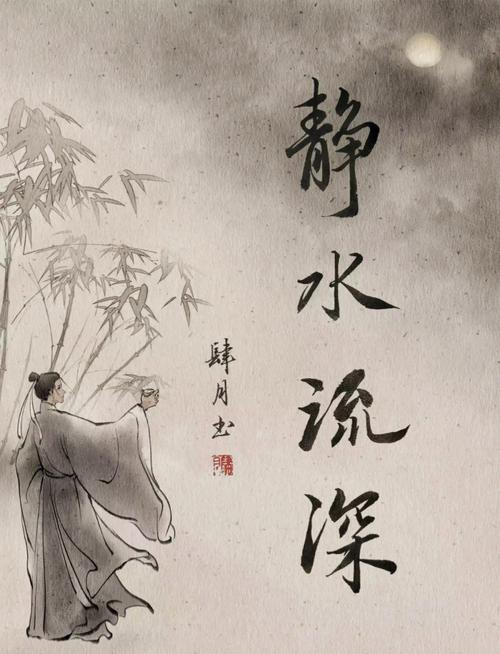 静水流深
肆月书